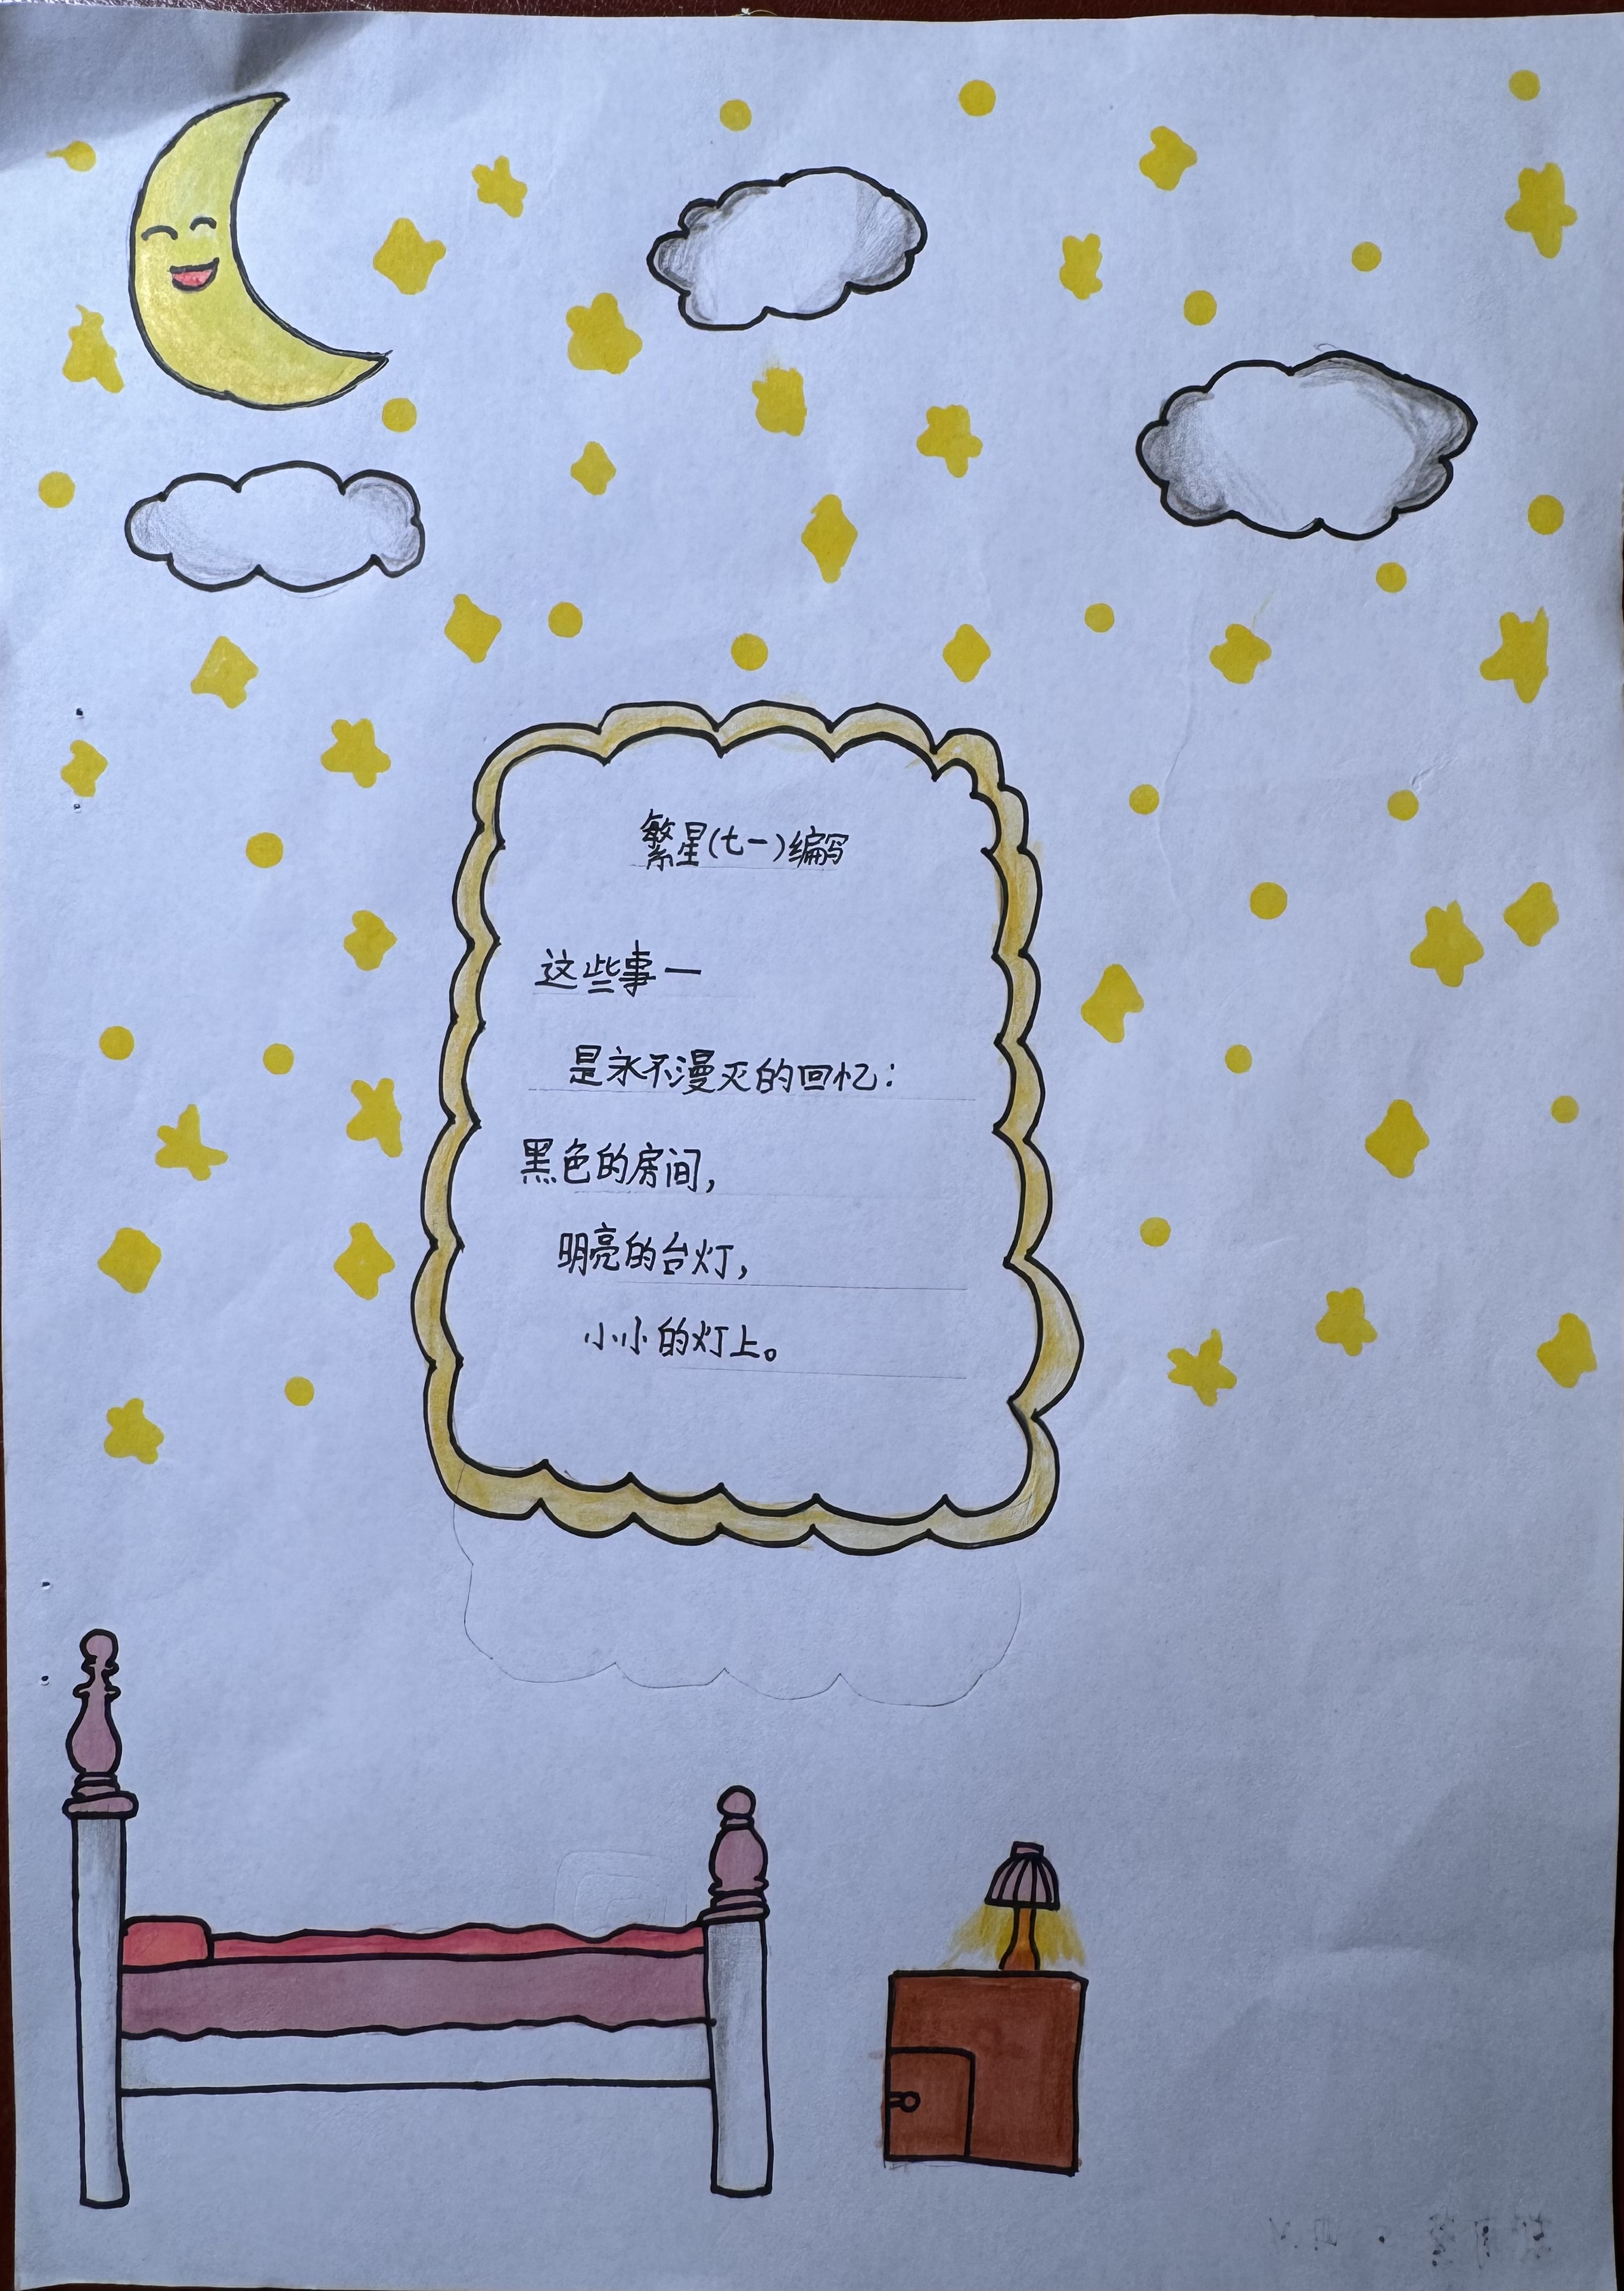 繁星(七一)编写
这些事一
是永不漫灭的回忆：
黑色的房间，
明亮的台灯，
小小的灯上。